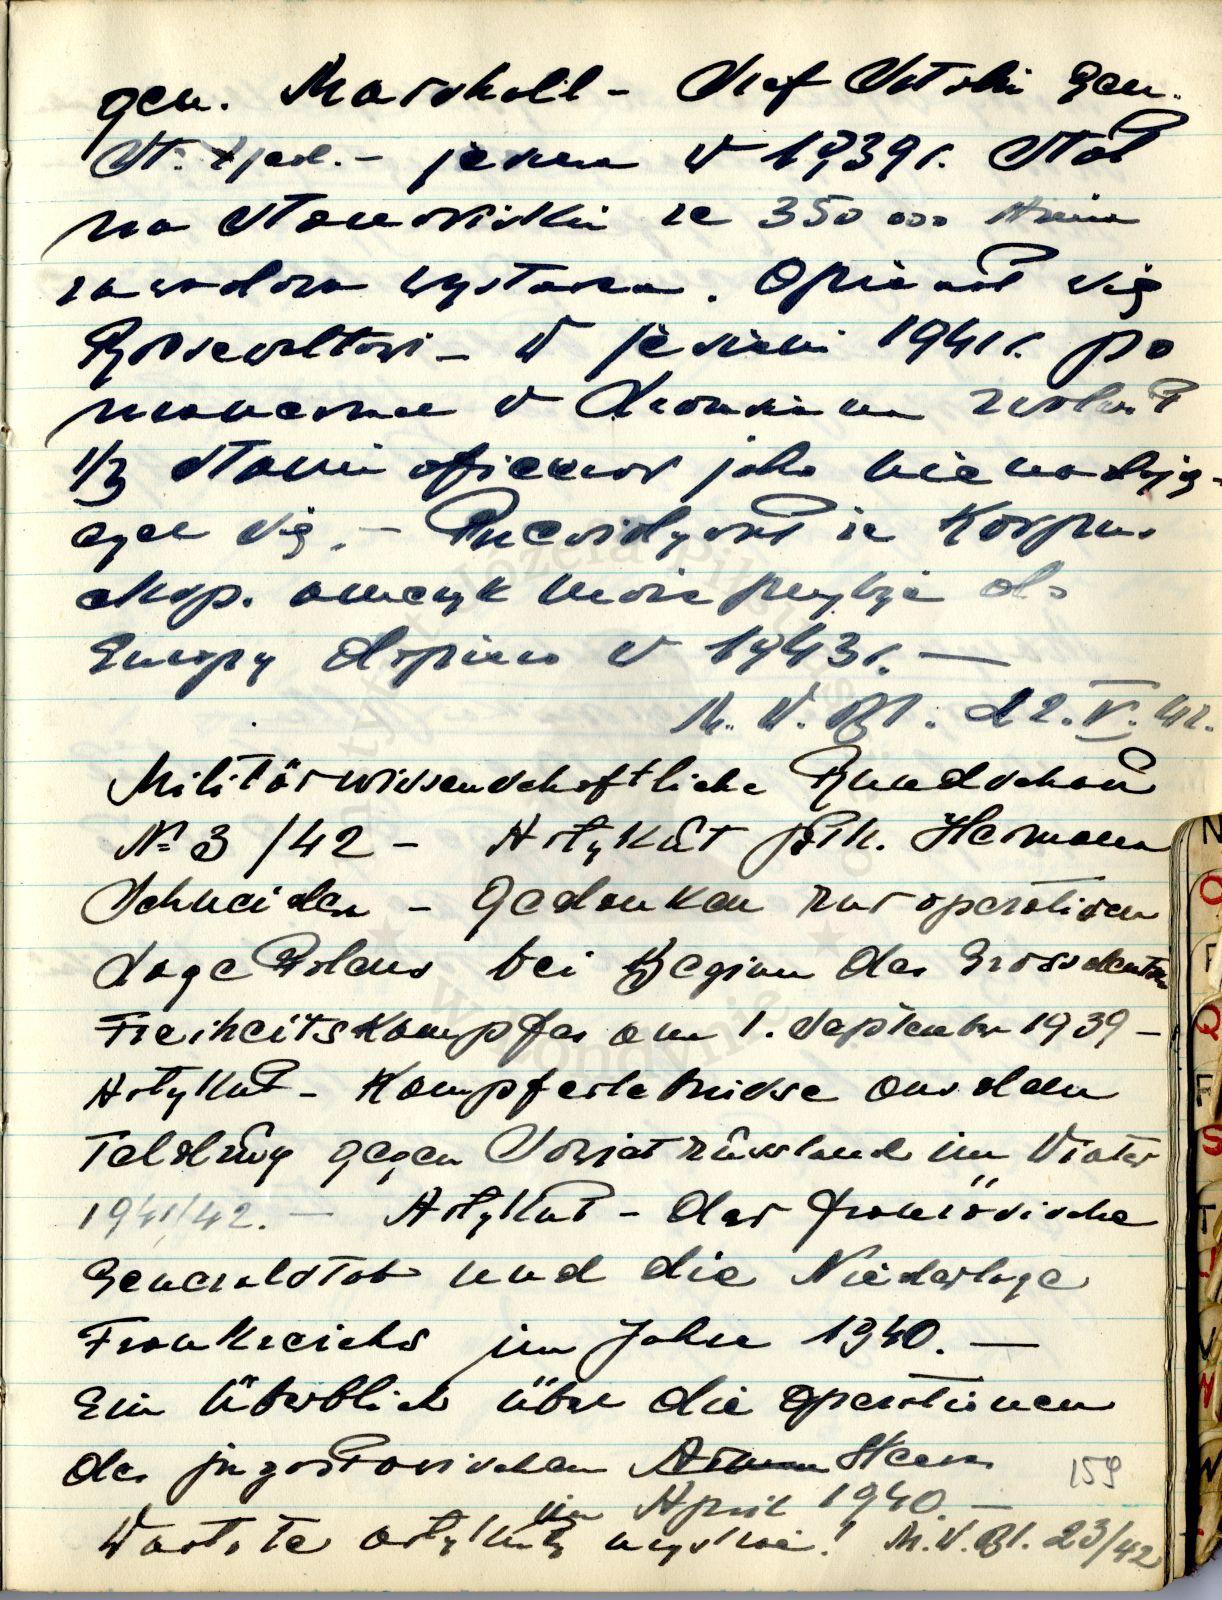 gen. Marshall - Szef Sztabu Gen.
St. Zjed. - jeszcze w 1939 r. stał
na stanowisku że 350 000 armia
zawodowa wystarcza. Opierał się
Rooseveltowi - w jesieni 1941 r. po
manewrach w zwolnił
1/3 stanu oficerów jako nie nadają-
cych się. - Przewidywał że Korpus
eksp. ameryk może przybyć do
Europy dopiero w 1943 r. —
M. W. Bl. d 2. V. 42.
Militärwissenschaftliche Rundschau
№ 3 /42 - Artykuł płk. Hermann
Schneider - Gedanken zur operativen
Lage Polens bei Beginn des Grossdeutsch
Freiheitskampfes am 1. September 1939 -
Artykuł - Kampferlebnisse aus dem
Feldzug gegen Sowjetrussland im Winter
1941/42. — Artykuł - Der französische
Generalstab und die Niederlage
Frankreichs im Jahre 1940. —
Ein Überblick über die operationen
des jugosławischen Heeres
im April 1940. —
Warto te artykuły ! M.W.Bl. 23/42
159
N
O
P
Q
R
S
T
U
V
W